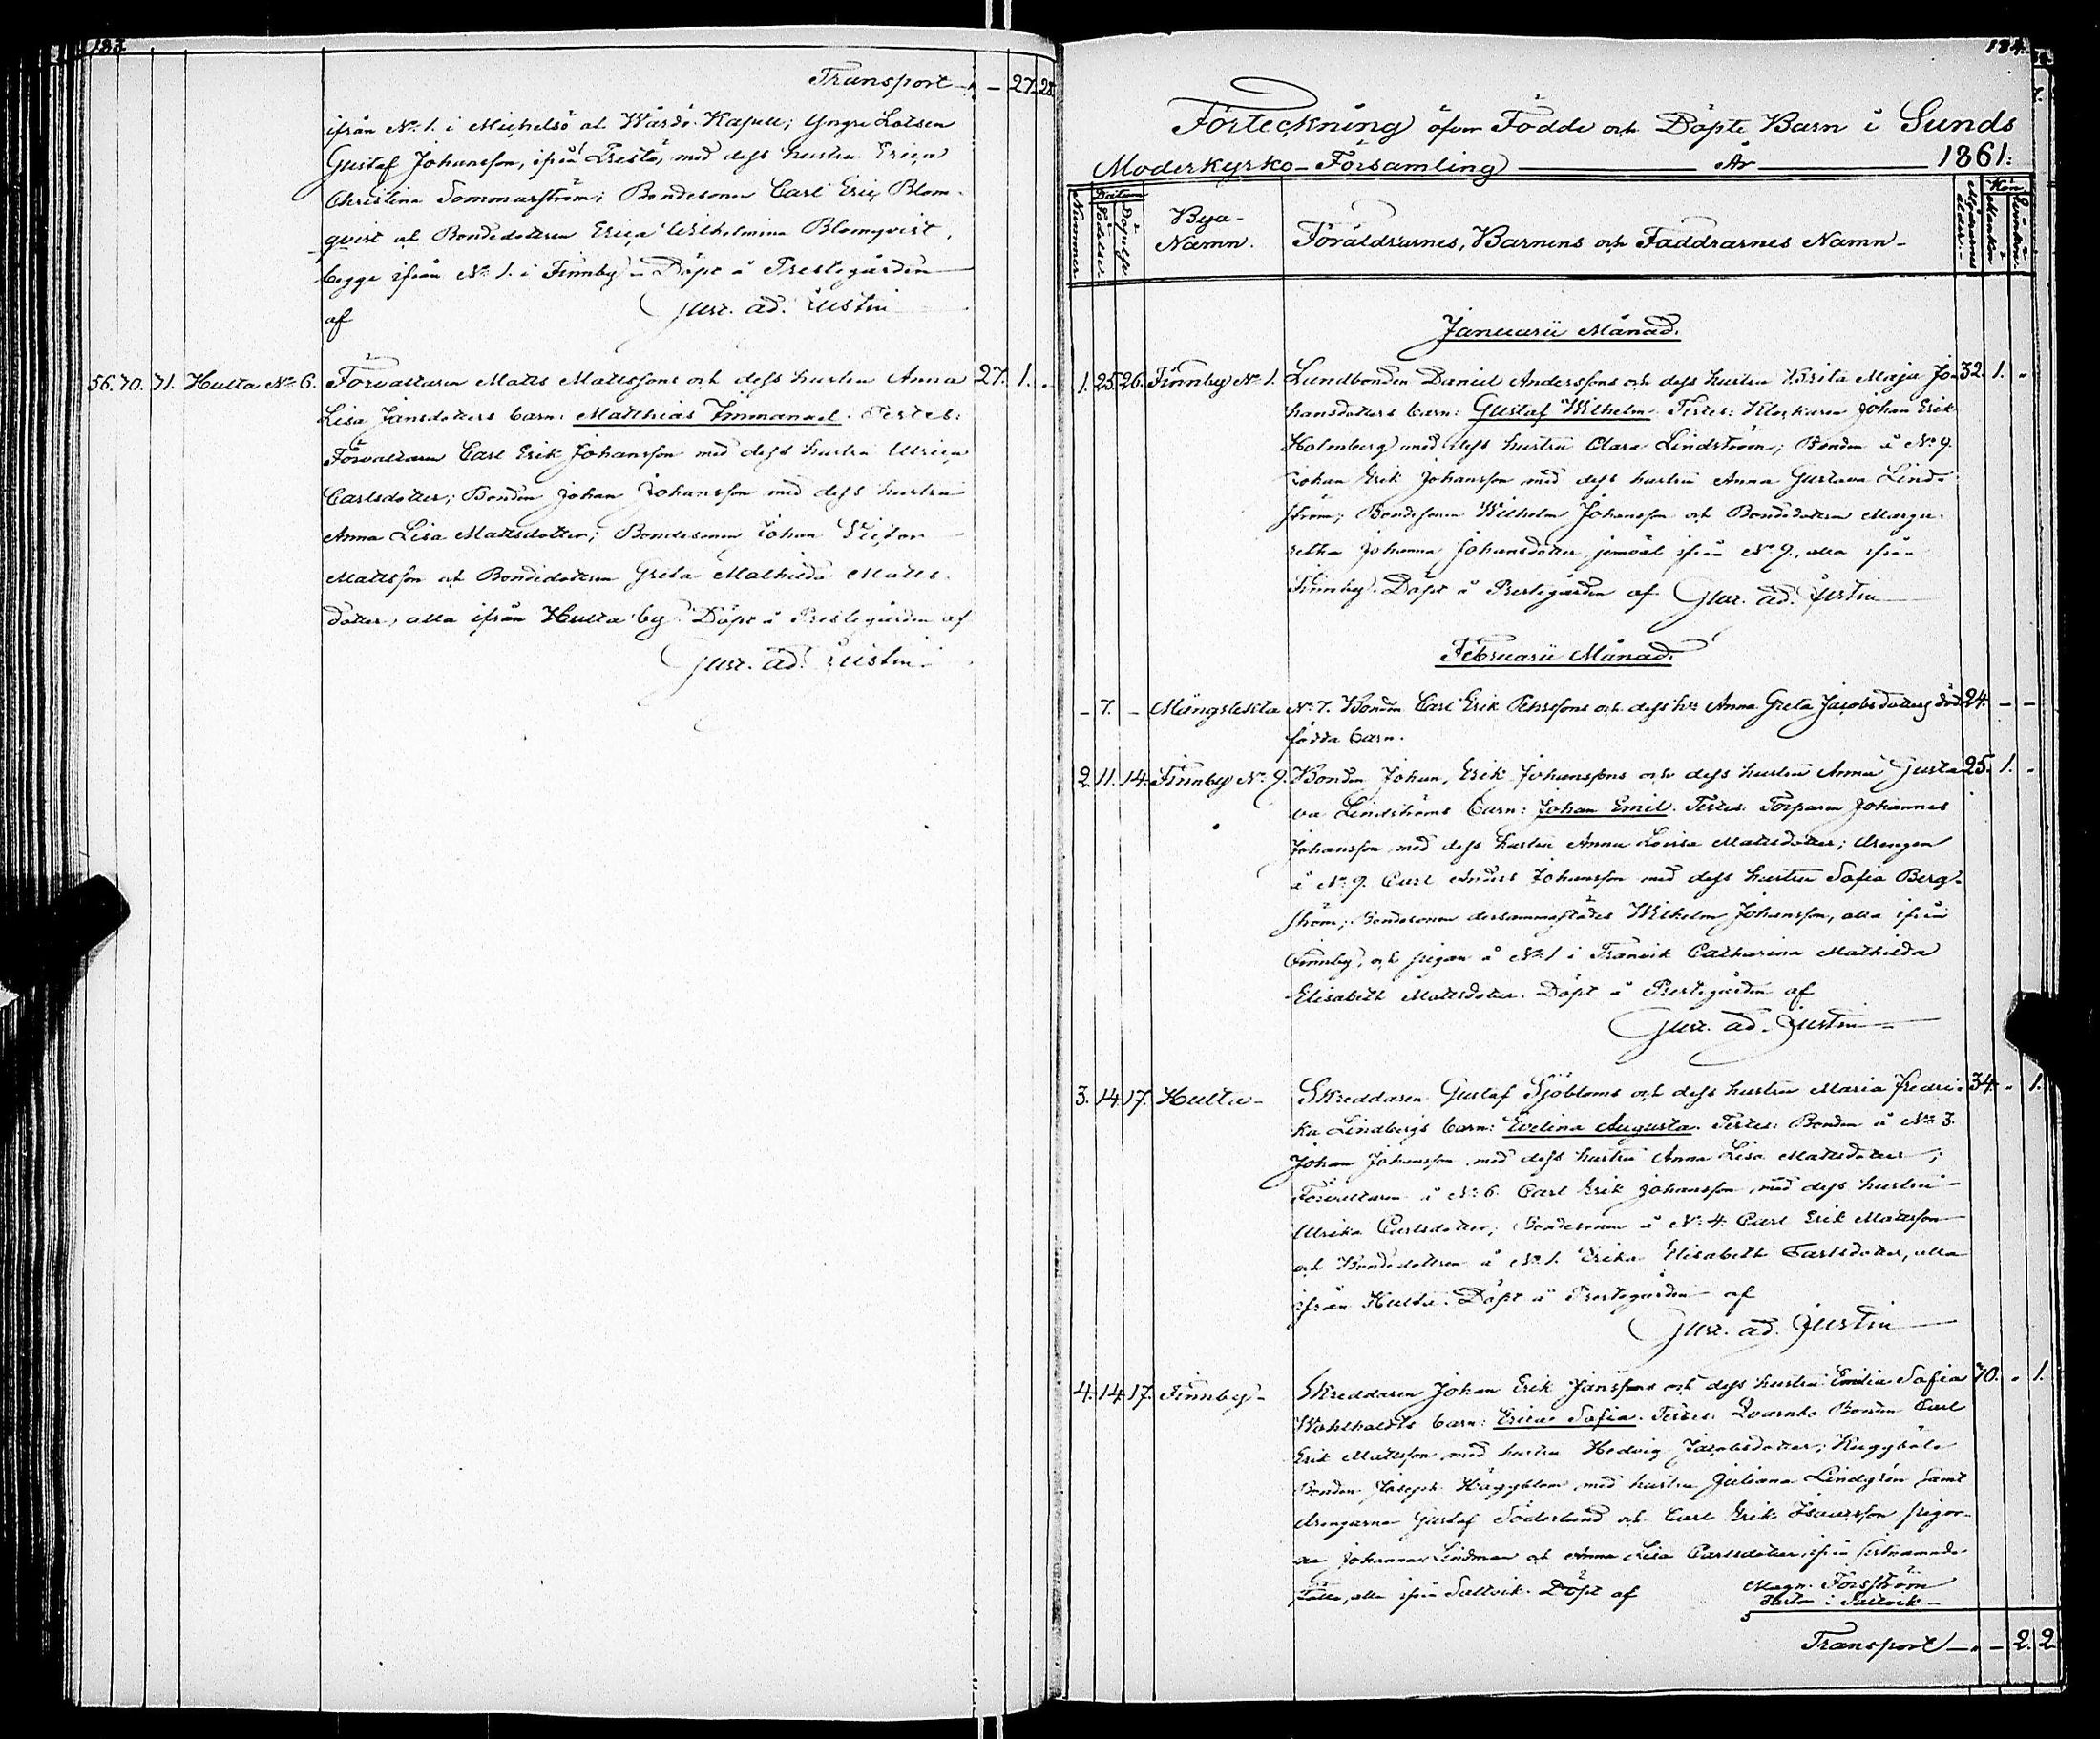 183
Transport - - 27. 28.
ifrån No 1. i Michelsö at Wårdö Kapell; Yngre Lotsen
Gustaf Johansson, ifrån Prestö, med dess hustru Erica
Christina Sommarström; Bondesonen Carl Eric Blom-
qvist och Bondedottren Erica Wilhelmina Blomqvist,
begge ifrån No 1. i Finnby. Döpt å Prestegården
af Gust. Ad. Justin
56. 70. 71. Hulta No 6. Förvaltaren Matts Mattssons och dess hustru Anna 27. 1. -
Lisa Jansdotters barn: Matthias Immanuel. Testes:
Förvaltaren Carl Erik Johansson med dess hustru Ulrica
Carlsdotter; Bonden Johan Johansson med dess hustru
Anna Lisa Mattsdotter; Bondesonen Johan Victor
Mattsson och Bondedottren Greta Mathilda Matts-
dotter, alla ifrån Hulta by. Döpt å Prestegården af
Gust. Ad. Justin.
184.
Förteckning öfver Födde och Döpte Barn i Sunds
Moderkyrko-Församling År 1861.
Nummer. Datum Födelse. Döpelse. Bya-Namn. Föräldrarnes, Barnens och Faddrarnes Namn- Mödrarnes ålder. Kön Mankön. Qvinkön.
Januarii Månad.
1. 25. 26. Finnby No 1. Landbonden Daniel Anderssons och dess hustru Brita Maja Jo- 32. 1. -
hansdotters barn: Gustaf Wilhelm. Testes: Klockaren Johan Erik
Holmberg med dess hustru Clara Lindström; Bonden å No 9.
Johan Erik Johansson med dess hustru Anna Gustava Lind-
ström; Bondesonen Wilhelm Johansson och Bondedottren Marga-
retha Johanna Johansdotter jemväl ifrån No 9., alla ifrån
Finnby. Döpt å Prestegården af Gust. Ad. Justin
Februarii Månad.
- 7. - Mångstekta No 7. Bonden Carl Erik Pehrssons och dess h:u Anna Greta Jacobsdotters död- 24. - -
födda barn.
2. 11. 14. Finnby No 9. Bonden Johan Erik Johanssons och dess hustru Anna Gusta- 25. 1. -
va Lindströms barn: Johan Emil. Testes: Torparen Johannes
Johansson med dess hustru Anna Lovisa Mattsdotter; Drengen
å No 9. Carl Anders Johansson med dess hustru Sofia Berg-
ström; Bondesonen dersammastädes Wilhelm Johansson, alla ifrån
Finnby, och pigan å No 1 i Tranvik Catharina Mathilda
Elisabeth Mattsdotter. Döpt å Prestegården af
Gust. Ad. Justin
3. 14. 17. Hulta- Skreddaren Gustaf Sjöbloms och dess hustru Maria Fredri- 34. - 1.
ka Lindbergs barn: Evelina Augusta. Testes: Bonden å No 3.
Johan Johansson med dess hustru Anna Lisa Mattsdotter;
Förvaltaren å No 6. Carl Erik Johansson med dess hustru
Ulrika Carlsdotter; Bondesonen å No 4. Carl Erik Mattsson
och Bondedottren å No 1. Erika Elisabeth Carlsdotter, alla
ifrån Hulta. Döpt å Prestegården af
Gust. Ad. Justin
4. 14. 17. Finnby- Skreddaren Johan Erik Janssons och dess hustru Emilia Sofia 40. - 1.
Wahlholdts barn: Erica Sofia. Testes: Qvarnbo Bonden Carl
Erik Mattsson med hustru Hedvig Jacobsdotter;
Bonden Joseph Häggblom med hustru Juliana Lindgrén samt
drengarne Gustaf Söderlund och Carl Erik Isacsson pigor-
na Johanna Lindman och Anna Lisa Carlsdotter, ifrån sistnämnde
alla ifrån Saltvik. Döpt af Magn. Forsström
i Saltvik
Transport - - 2. 2.